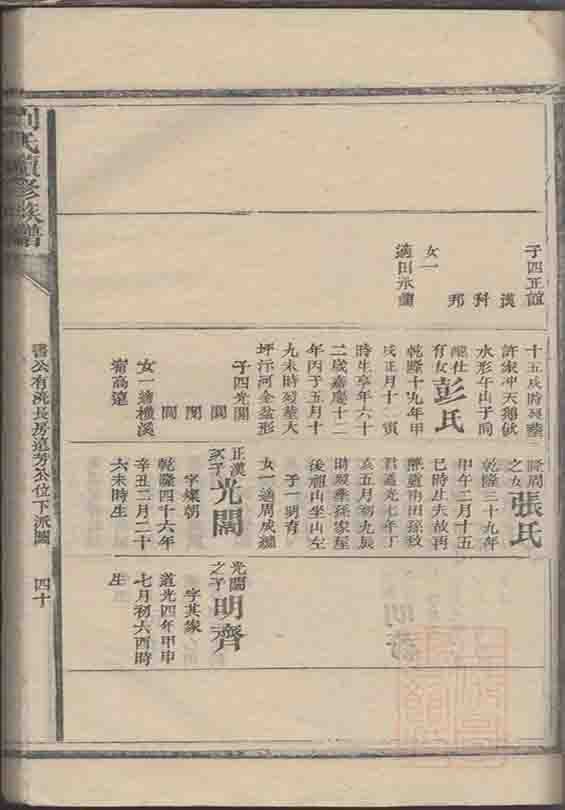 子四正誼
漢
科
邦
女一
適田永蘭
十五戌時歿葬
許家冲天鵝伏
水形午山子向
仕
有女彭氏
乾隆十九年甲
戌正月十二寅
時生享年六十
二歲嘉慶十二
年丙子五月十
九未時歿葬大
坪汙河金盆形
子四光開
女一適橫溪
甯高遠
賢周
之女張氏
乾隆三十九年
甲午二月十五
巳時生夫故再
醮適南田孫致
君道光七年丁
亥五月初九辰
時歿葬孫家屋
後祖山坐山左
子一明育
女一適周成
正漢
次子光闓
字燦朝
乾隆四十六年
辛丑二月二十
六未時生
光闓
之子明齊
字其家
道光四年甲申
七月初六酉時
生
劉氏續修族譜
書公有洸長房道芳公位下派圖
四十